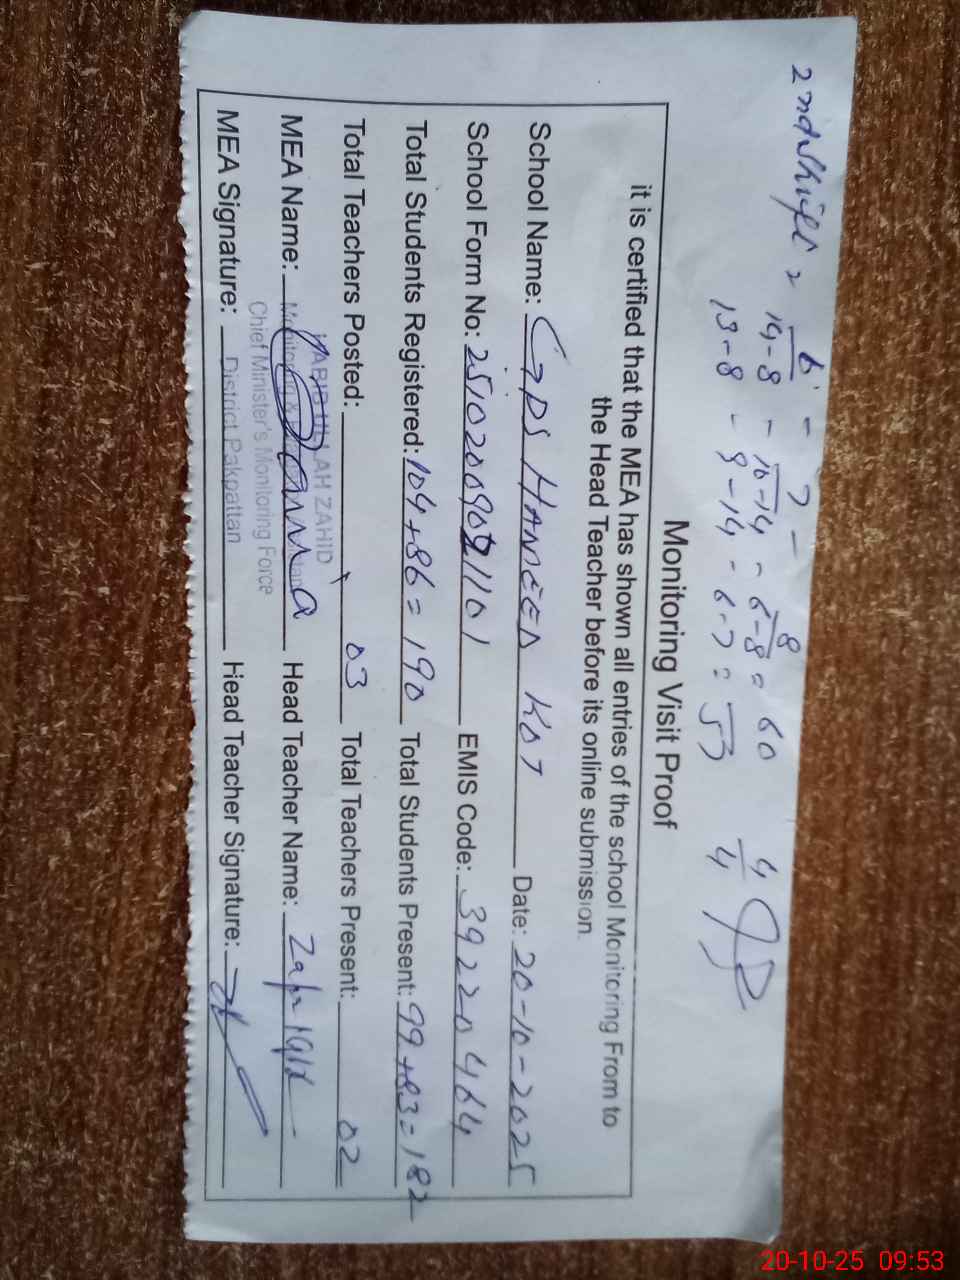 2nd shift
13-8 - 9-14 - 6-7 = 53
Monitoring Visit Proof
it is certified that the MEA has shown all entries of the school Monitoring From to
the Head Teacher before its online submission.
School Name: GPS HAMEED KOT Date: 20-10-2025
School Form No: EMIS Code: 39220464
Total Students Registered: 104+86= 190 Total Students Present: 99+83=182
Total Teachers Posted: 03 Total Teachers Present: 02
ABID ULLAH ZAHID
MEA Name: Head Teacher Name: Zafar Iqbal
Chief Minister's Monitoring Force
MEA Signature: District Pakpattan Head Teacher Signature:
20-10-25 09:53